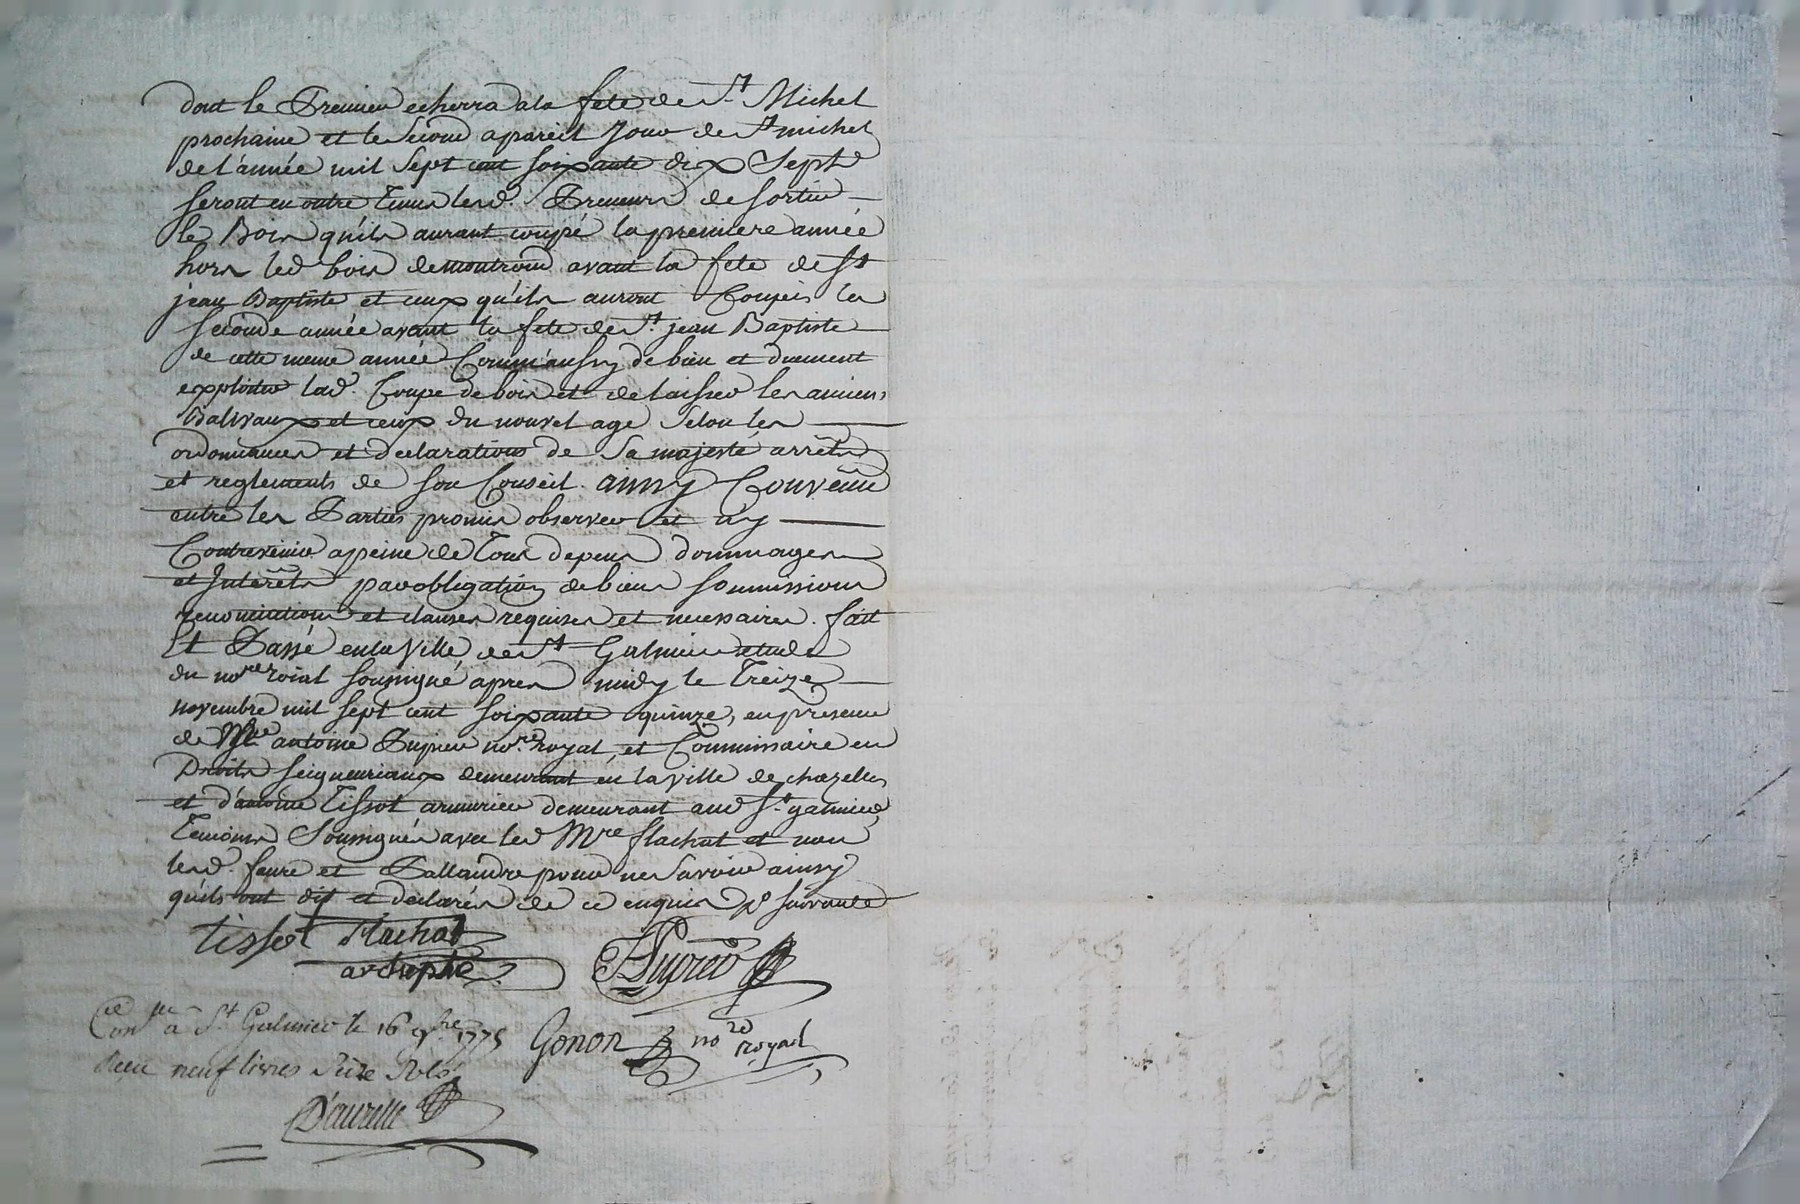 dont le Premier echerra ala fete de St. Michel
prochaine et le second a pareil Jour de St michel
de l'année mil sept cent soixante dix Sept
seront en outre Tenus lesd. Preneurs de sortir
le Bois qu'ils auront coupé la premiere année
hors led bois de montrond avant la fete de St
jean Baptiste et ceux qu'ils auront Coupés la
seconde année avant la fete de St. jean Baptiste
de cette meme année Comm'aussy de bien et duement
exploiter lad. Coupe de bois et de laisser les anciens
Balivaux et ceux du nouvel age selon les
ordonnances et declarations de Sa majesté arrêts
et reglements de son Conseil. ainsy Convenu
entre les Parties promis observer et n'y
Contrevenir apeine de Tous depens dommages
et Interêts par obligation de biens soumissions
renonciations et clauses requises et necessaires. fait
Et Passé en la Ville de St Galmier etude
du nore roial soussigné apres midy le Treize
novembre mil sept cent soixante quinze, en presence
de Mre antoine Dupieu nore royal, et Commissaire en
Droits seigneuriaux demeurant en la ville de chazelles
et d'antoine Tissot armurier demeurant aud St. galmier
Temoins Soussignés avec led Mre flachat et non
lesd. faure et Pallandre pour ne savoir ainsy
qu'ils ont dit et declarés de ce enquis
tissot flachat
Gonon nore royal
Conlle a St Galmier le 16 9bre 1775
Recu neuf livres Seize Sols
Daurelle